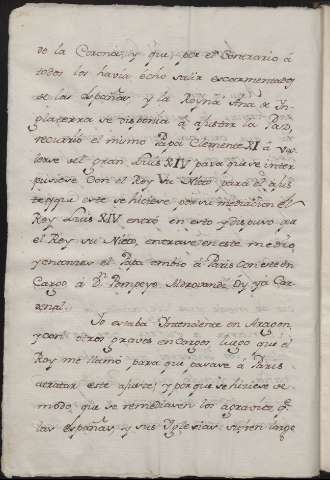 de la Corona, y que por el Contrario á
todos los havia echo salir escarmentados
de las españas, y la Reyna Ana de In
glaterra se disponia á ajustar la Paz,
recurrió el mismo Papa Clemente XI á va
lerse del gran Luis XIV para que se inter
pusiese Con el Rey Su Nieto para el ajus
te y que este se hiciese por su mediacion el
Rey Luis XIV entró en esto y dispuso que
el Rey Su Nieto, entrase en este medio
y entonces el Papa embió á Paris Con este en
Cargo á Dn. Pompeyo Aldrovandi, oy ya Car
denal.
Yo estaba Yntendente en Aragon,
y con otros graves encargos luego que el
Rey me llamó para que pasase á Paris
atratar este ajuste; y porque se hiciese de
modo, que se remediasen los agravios qe.
las españas, y sus Yglesias sufren largo